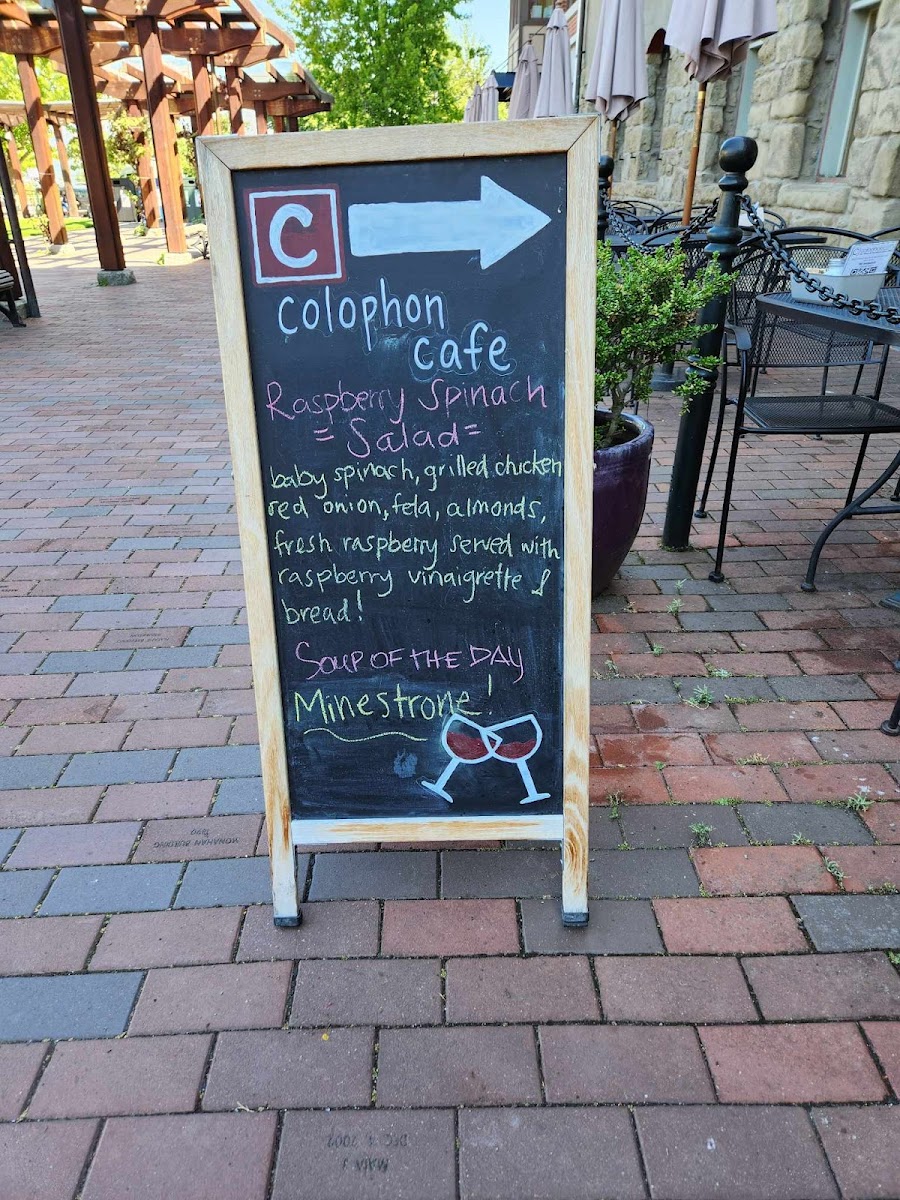 C
colophon
cafe
Raspberry Spinach
= Salad =
baby spinach, grilled chicken
red onion, feta, almonds,
fresh raspberry served with
raspberry vinaigrette &
bread!
SOUP OF THE DAY
Minestrone!
MONAHAN BUILDING
1890
MAIA J
DEC 4 2002